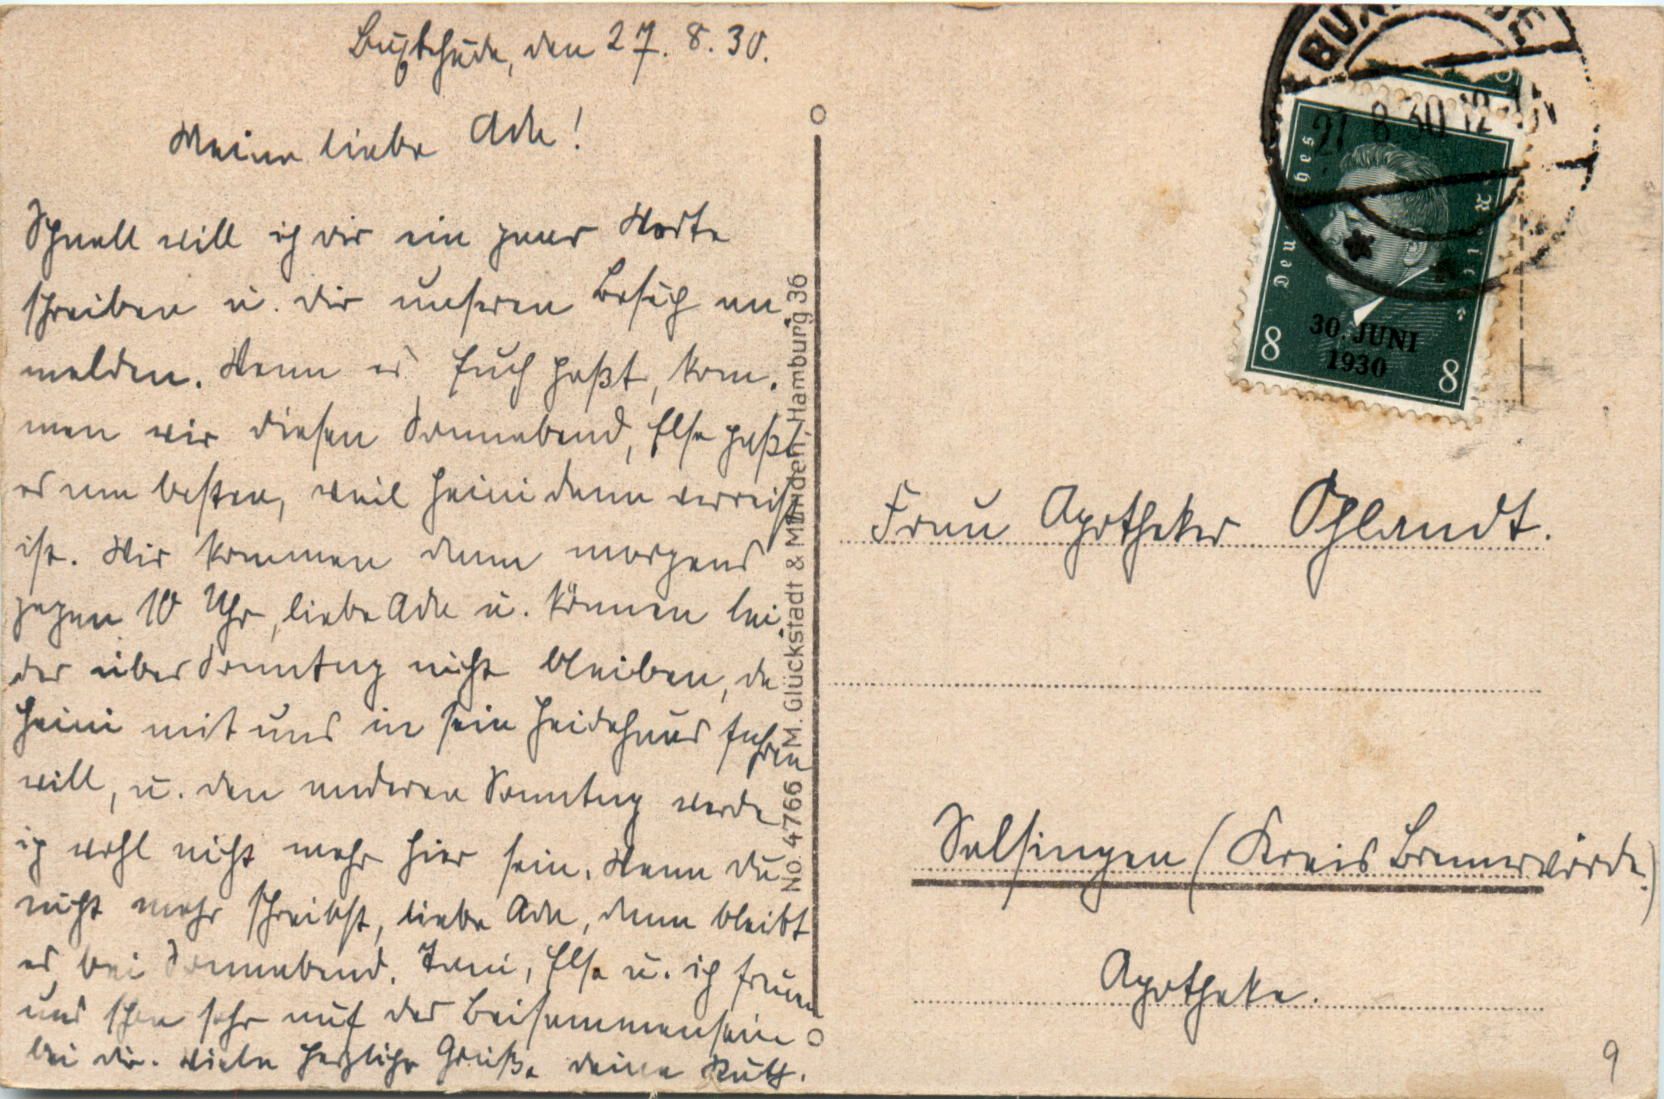 Buxtehude, den 27. 8. 30.
Meine liebe Ada!
Schnell will ich dir ein paar Worte
schreiben u. dir unseren Besuch an-
melden. Wenn es Euch paßt, kom-
men wir diesen Sonnabend, Else paßt
es am besten, weil Heini dann verreist
ist. Wir kommen dann morgens
gegen 10 Uhr, liebe Ada u. können lei-
der über Sonntag nicht bleiben, da
Heini mit uns in sein Heidehaus fahren
will, u. den anderen Sonntag werde
ich wohl nicht mehr hier sein. Wenn du
nicht mehr schreibst, liebe Ada, dann bleibt
es bei Sonnabend. Toni, Else u. ich freuen
uns schon sehr auf das Beisammensein
bei dir. Viele herzliche Grüße deine Ruth.
No. 4766 M. Glückstadt & Münden, Hamburg 36
BUXTEHUDE
27. 8. 30. 12-
Deutsches Reich
30. JUNI
1930
8 8
Frau Apotheker Ohlandt.
Selsingen (Kreis Bremervörde.)
Apotheke.
9